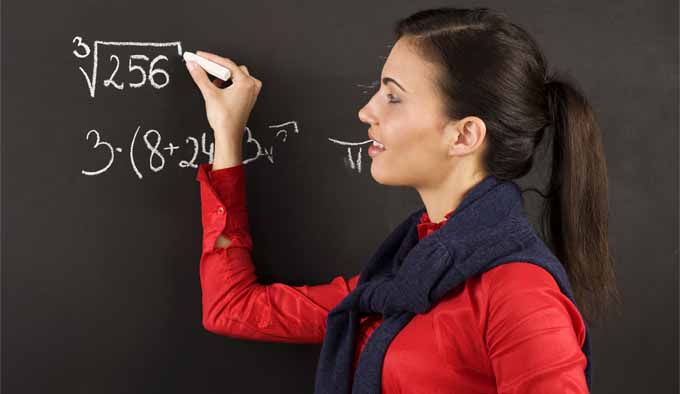 ³√256
3·(8+24
3√
√